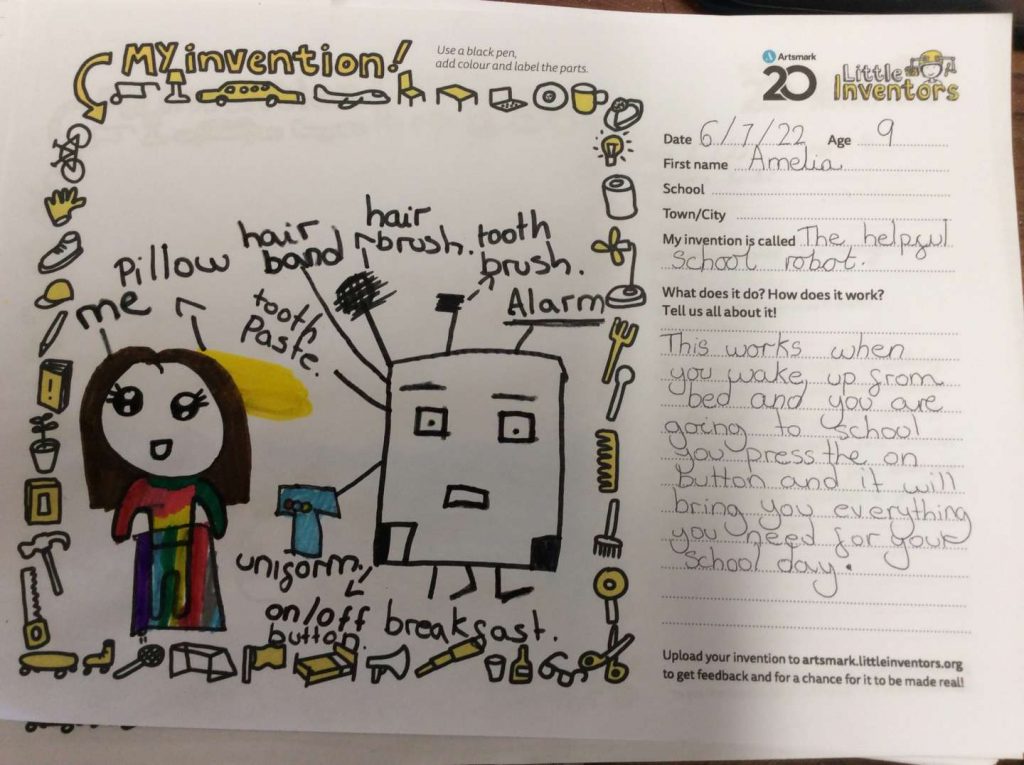 My invention!
Use a black pen,
add colour and label the parts.
me
pillow
hair
band
hair
brush.
tooth
brush.
Alarm
tooth
Paste.
uniform.
on/off
button.
breakfast.
Artsmark
20
Little
Inventors
Date 6/7/22 Age 9
First name Amelia
School
Town/City
My invention is called The helpful
School robot.
What does it do? How does it work?
Tell us all about it!
This works when
you wake up from
bed and you are
going to school
you press the on
button and it will
bring you everything
you need for your
school day.
Upload your invention to artsmark.littleinventors.org
to get feedback and for a chance for it to be made real!